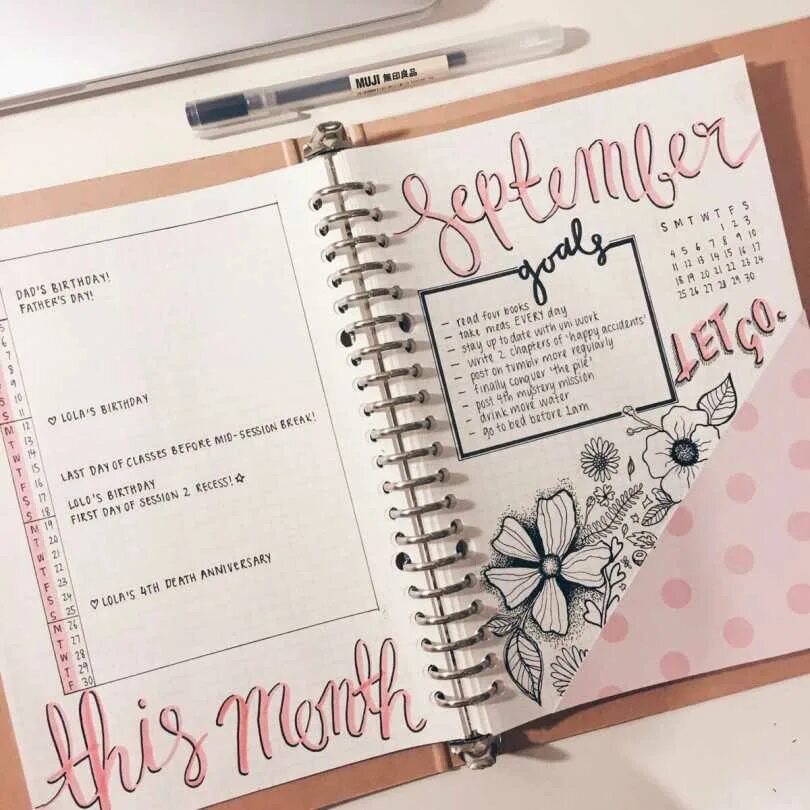 MUJI 無印良品
DAD'S BIRTHDAY!
FATHER'S DAY!
S 5
6
7
8
9
S 10
S 11
M 12 ♡ LOLA'S BIRTHDAY
T 13
W 14
T 15 LAST DAY OF CLASSES BEFORE MID-SESSION BREAK!
F 16
S 17 LOLO'S BIRTHDAY
S 18 FIRST DAY OF SESSION 2 RECESS! ☆
M 19
T 20
W 21
T 22
F 23
S 24 ♡ LOLA'S 4TH DEATH ANNIVERSARY
S 25
M 26
T 27
W 28
T 29
F 30
this month
September
S M T W T F S
1 2 3
4 5 6 7 8 9 10
11 12 13 14 15 16 17
18 19 20 21 22 23 24
25 26 27 28 29 30
goals
- read four books
- take meds EVERY day
- stay up to date with uni work
- write 2 chapters of 'happy accidents'
- post on tumblr more regularly
- finally conquer 'the pile'
- post 4th mystery mission
- drink more water
- go to bed before 1am
LET GO.